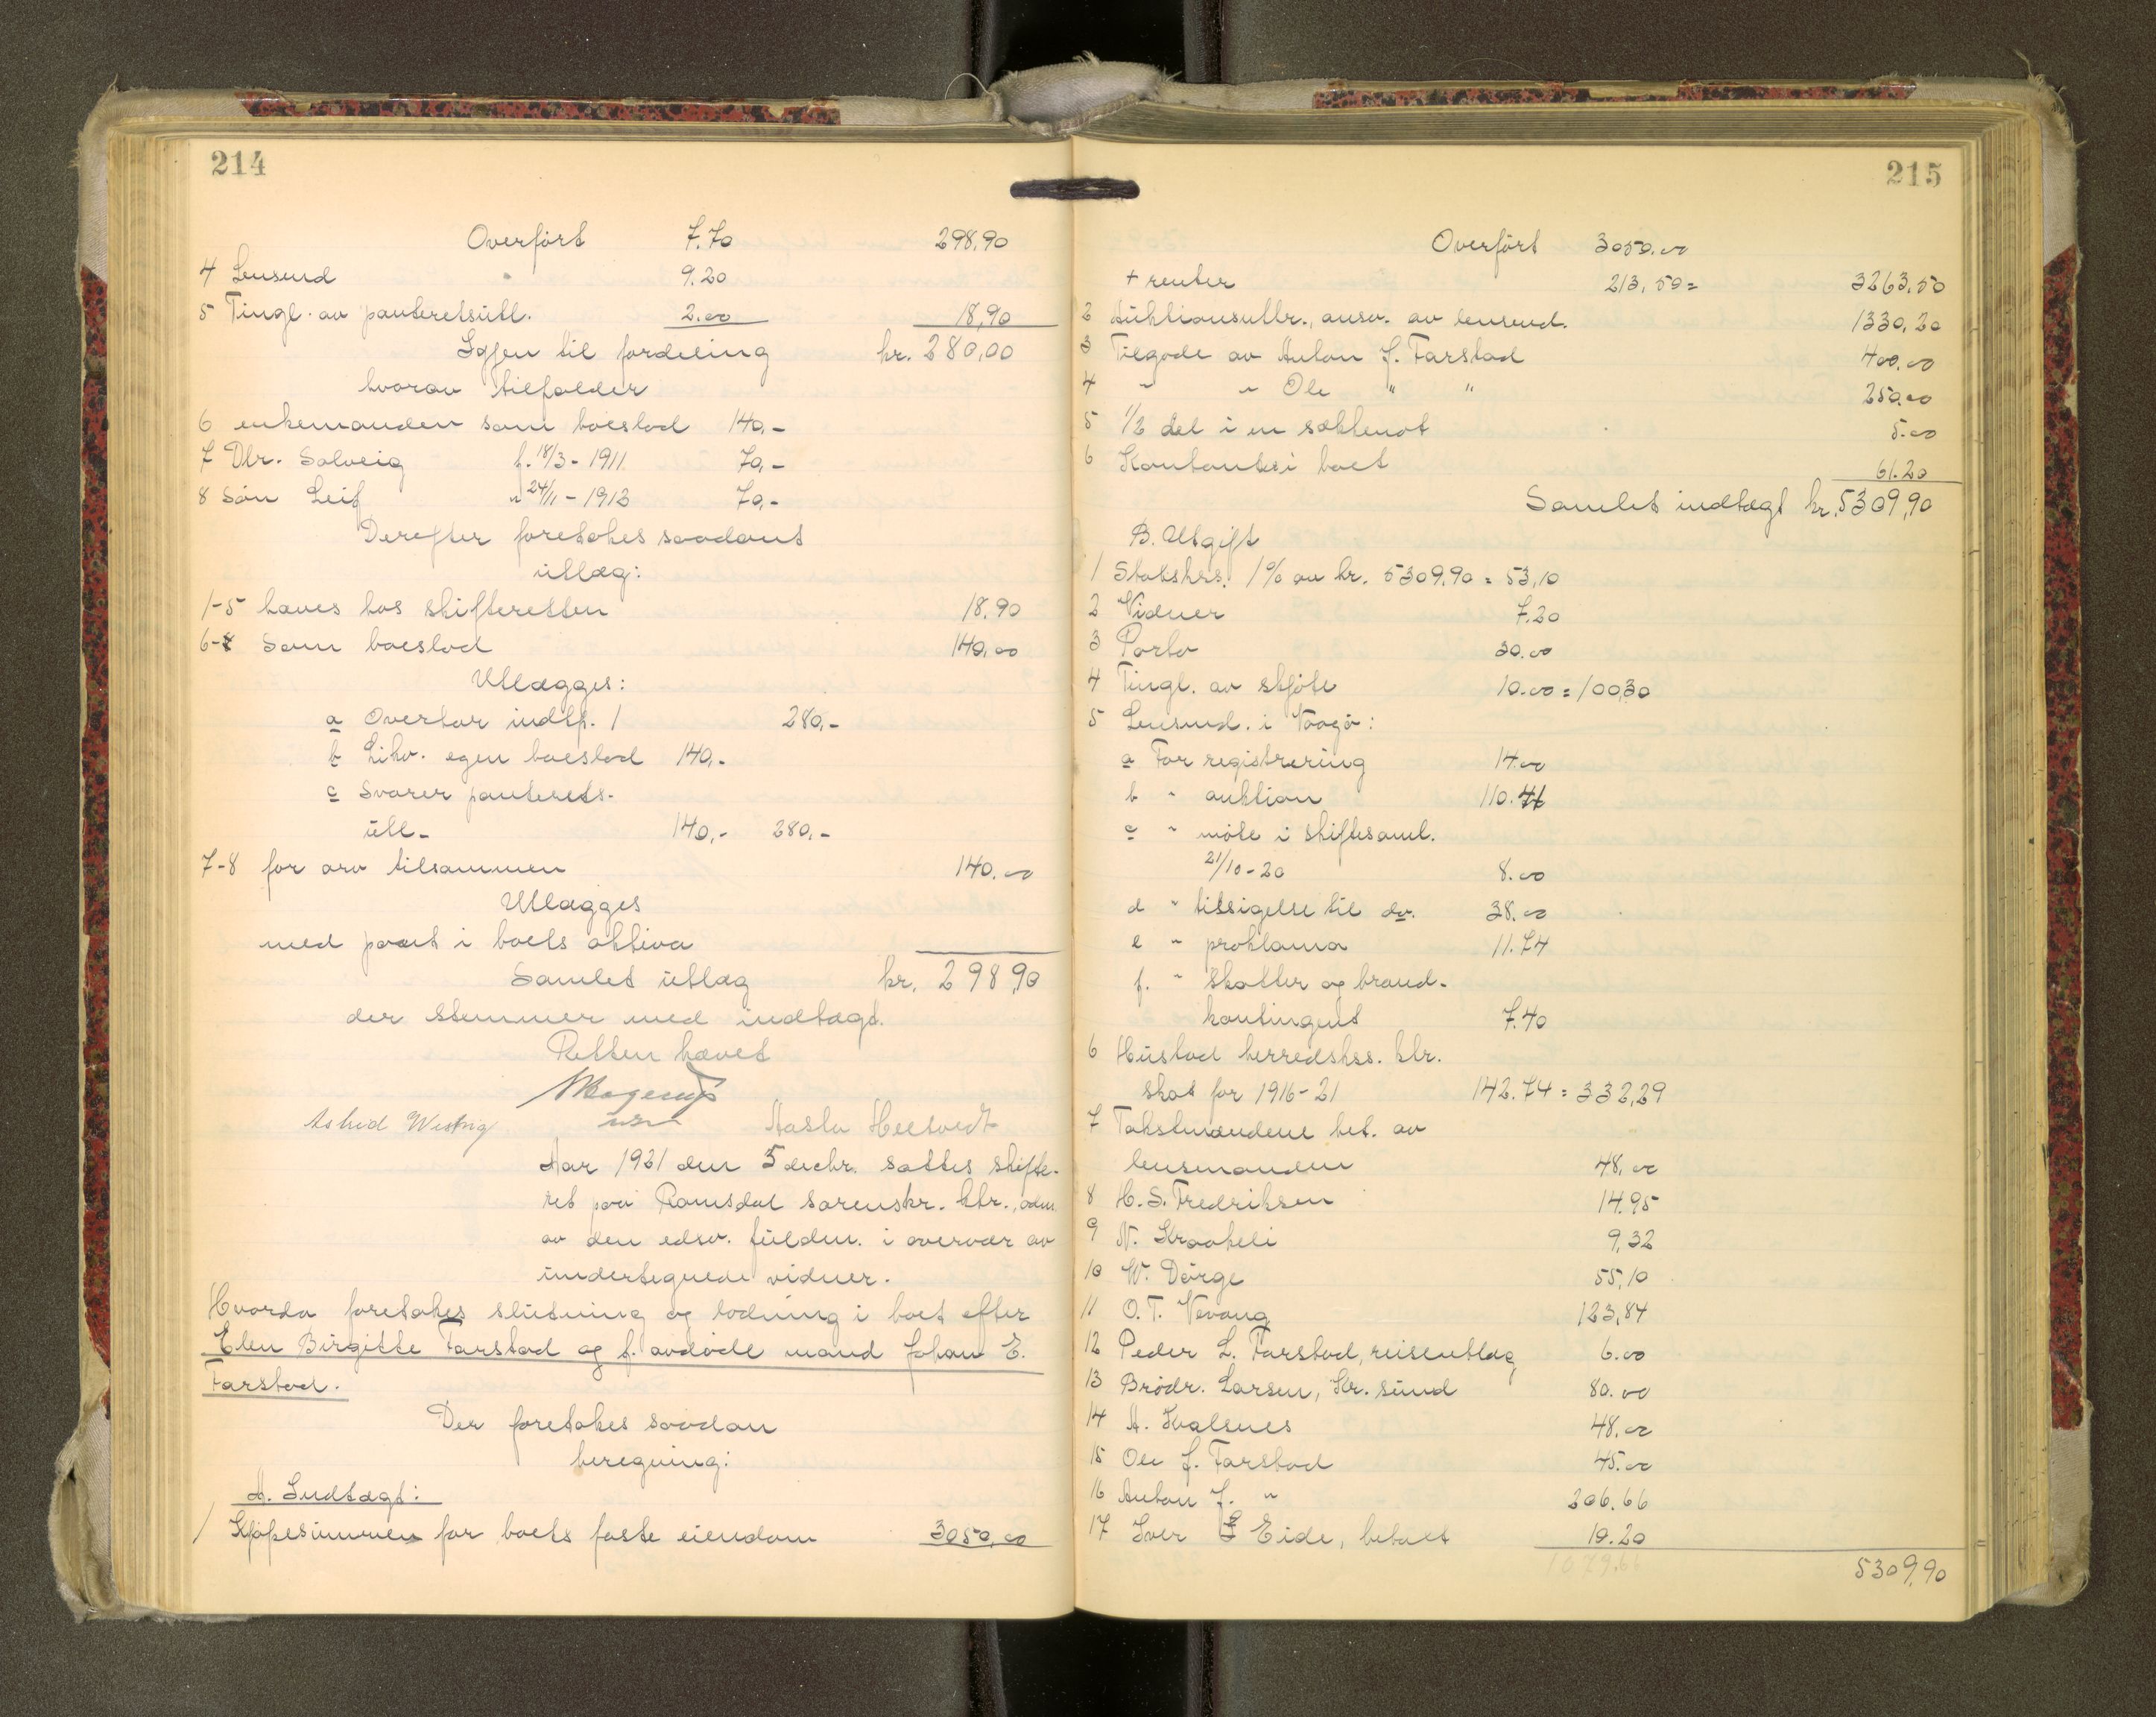 214
Overført 7.70 298.90
4 Lensmd 9.20
5 Tingl. av panteretsutl. 2.00 18,90
Igjen til fordeling kr. 280,00
hvorav tilfalder
6 enkemanden som boeslod 140,-
7 Dtr. Solveig f. 18/3 - 1911 70,-
8 Søn Leif " 24/11 - 1913 70,-
Derefter foretakes saadant
utlæg:
1-5 haves hos skifteretten 18,90
6-8 som boeslod 140,00
Utlægges:
a Overtar indtf. 1 280,-
b Likv. egen boeslod 140,-
c Svarer panterets-
utl- 140,- 280,-
7-8 for arv tilsammen 140.00
Utlægges
med pant i boets aktiva
Samlet utlæg kr. 298,90
der stemmer med indtægt.
Retten hævet
Astrid Westrig
Aar 1921 den 5 decbr. sattes skifte-
ret paa Romsdal sorenskr. ktr., adm
av den edsv. fuldm. i overvær av
undertegnede vidner.
Hvorda foretakes slutning og lodning i boet efter
Elen Birgitte Farstad og f. avdøde mand Johan E.
Farstad.
Der foretakes saadan
beregning:
A. Indtægt:
1 Kjøpesummen for boets faste eiendom 3050,00
215
Overført 3050.00
+ renter 213,50 = 3263,50
2 Auktionsutbr., ansv. av lensmd. 1330,20
3 Tilgode av Anton J. Farstad 400.00
4 " " Ole " " 250.00
5 1/2 del i en sættenot 5.00
6 Kontanter i boet 61.20
Samlet indtægt kr. 5309,90
B. Utgift
1 Statskrs. 1% av kr. 5309,90 = 53,10
2 Vidner 7.20
3 Porto 30.00
4 Tingl. av skjøte 10.00 = 100,30
5 Lensmd. i Vaagø:
a For registrering 14.00
b " auktion 110.41
c " møte i skiftesaml.
21/10-20 8.00
d " tilsigelse til do. 38.00
e " proklama 11.74
f. " skatter og brand-
kontingent 7.40
6 Hustad herredskss. ktr.
skat for 1916-21 142.74 = 332,29
7 Takstmændene bet. av
lensmanden 48,00
8 H. S. Fredriksen 14.95
9 N. Kraakeli 9,32
10 W. Dørge 55,10
11 O. T. Vevang 123,84
12 Peder L. Farstad, reiseutlæg 6.00
13 Brødr. Larsen, Kr. sund 80.00
14 A. Kvalsnes 48.00
15 Ole J. Farstad 45.00
16 Anton J. " 206.66
17 Iver Eide, betalt 10.20
1079.66
5309,90